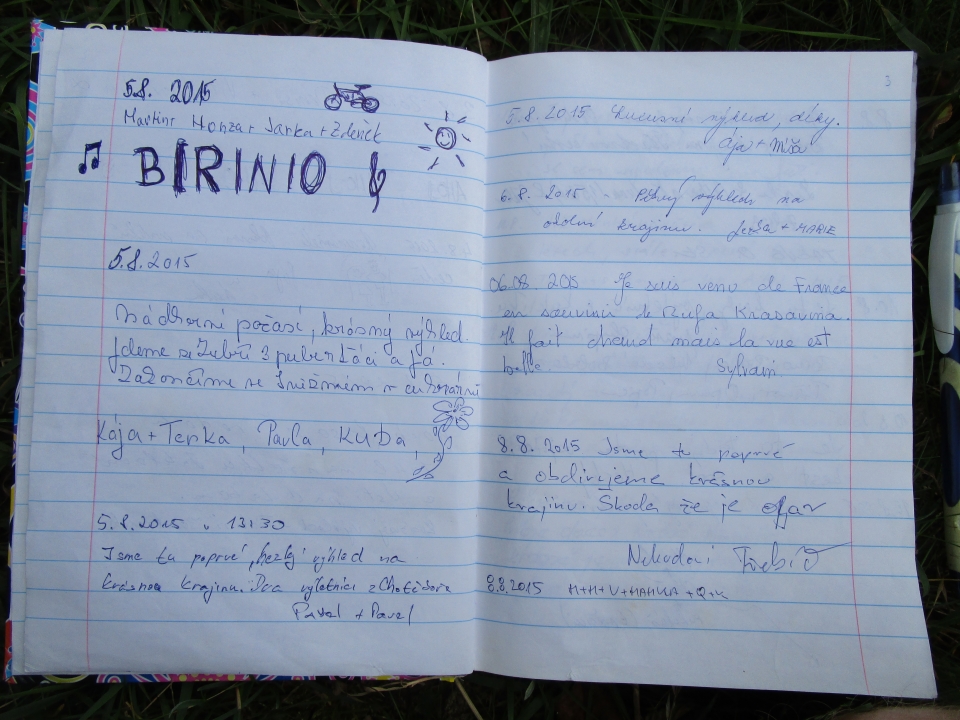 5.8. 2015
Martin + Honza + Jarka + Zdeněk
BIRINIO
5.8.2015
Nádherné počasí, krásný výhled.
Jdeme ze Zubří 3 puberťáci a já.
Zakončíme ve Sněžném v cukrárně
Kája + Terka, Pavla, KUBA,
5.8.2015 v 13:30
Jsme tu poprvé, hezký výhled na
krásnou krajinu. Dva výletníci z Chotěboře
Pavel + Pavel
3
5.8.2015 Luxusní výhled, díky.
Ája + Míša
6.8. 2015 - Pěkný výhled na
okolní krajinu. + MARIE
06.08. 205 Je suis venu de France
en souvenir de Krasavina.
Il fait chaud mais la vue est
belle. Sylvain
8.8. 2015 Jsme tu poprvé
a obdivujeme krásnou
krajinu. Škoda že je opar
Třebíč
8.8.2015 M+H+V+MAMKA +Q+K